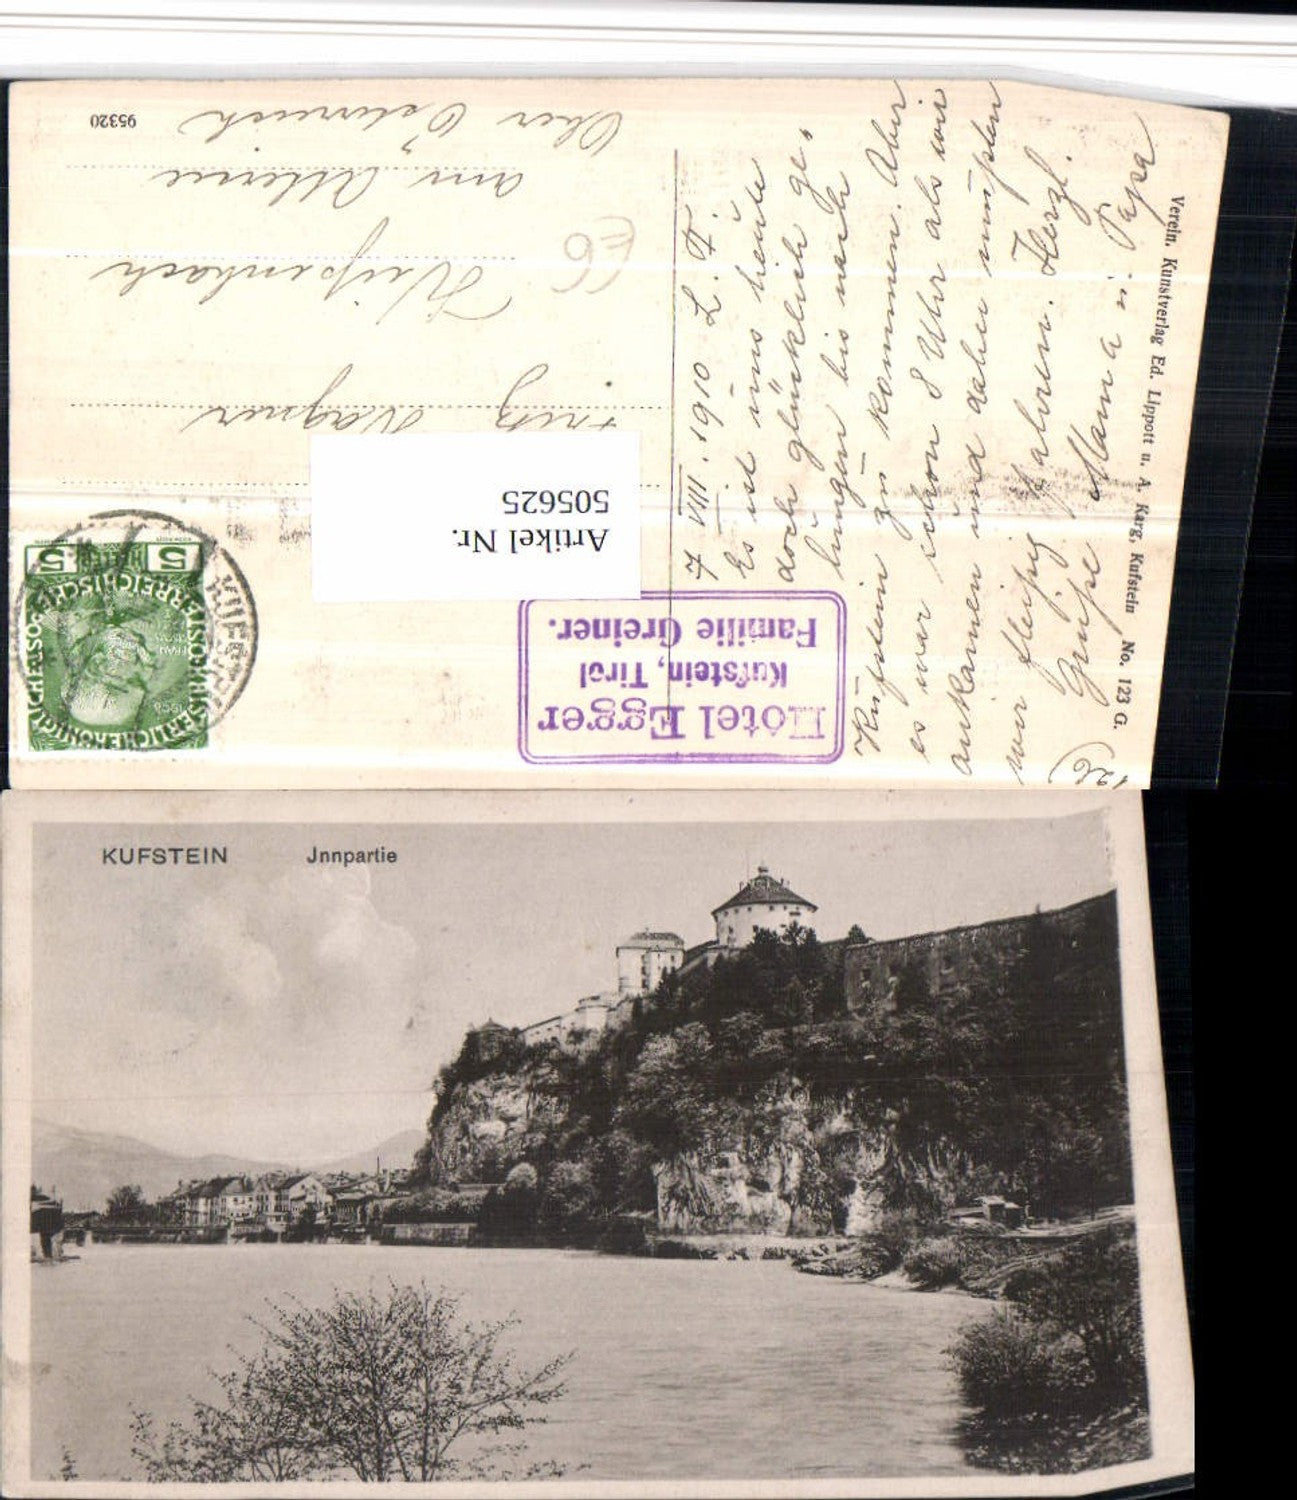 95320
Ober Österreich
am Attersee
Weißenbach
Fritz Wagner
E6
Artikel Nr.
505625
5 5
1908
KUFSTEIN
Hotel Egger
Kufstein, Tirol
Familie Greiner.
7 VIII. 1910 L. F.
Es ist uns heute
doch glücklich ge-
lungen bis nach
Kufstein zu kommen. Aber
es war schon 8 Uhr als wir
ankamen und daher mußten
wir fleißig fahren. Herzl.
Grüße Mama u. Papa
(26)
Verein. Kunstverlag Ed. Lippott u. A. Karg, Kufstein No. 123 G.
KUFSTEIN Jnnpartie